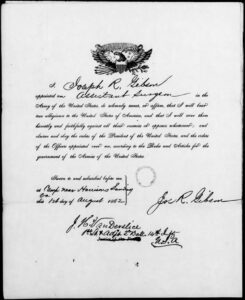 I, Joseph R. Gibson
appointed an Assistant Surgeon in the
Army of the United States, do solemnly swear, or affirm, that I will bear
true allegiance to the United States of America, and that I will serve them
honestly and faithfully against all their enemies or opposers whatsoever; and
observe and obey the orders of the President of the United States, and the orders
of the Officers appointed over me, according to the Rules and Articles for the
government of the Armies of the United States.
Sworn to and subscribed before me
at Camp near Harrisons Landing
Va
this 1st day of August 1862
Jos R. Gibson
J. H. Van Derslice
1st Lt & Adjt 2 Batt 14th Inf
U.S.A